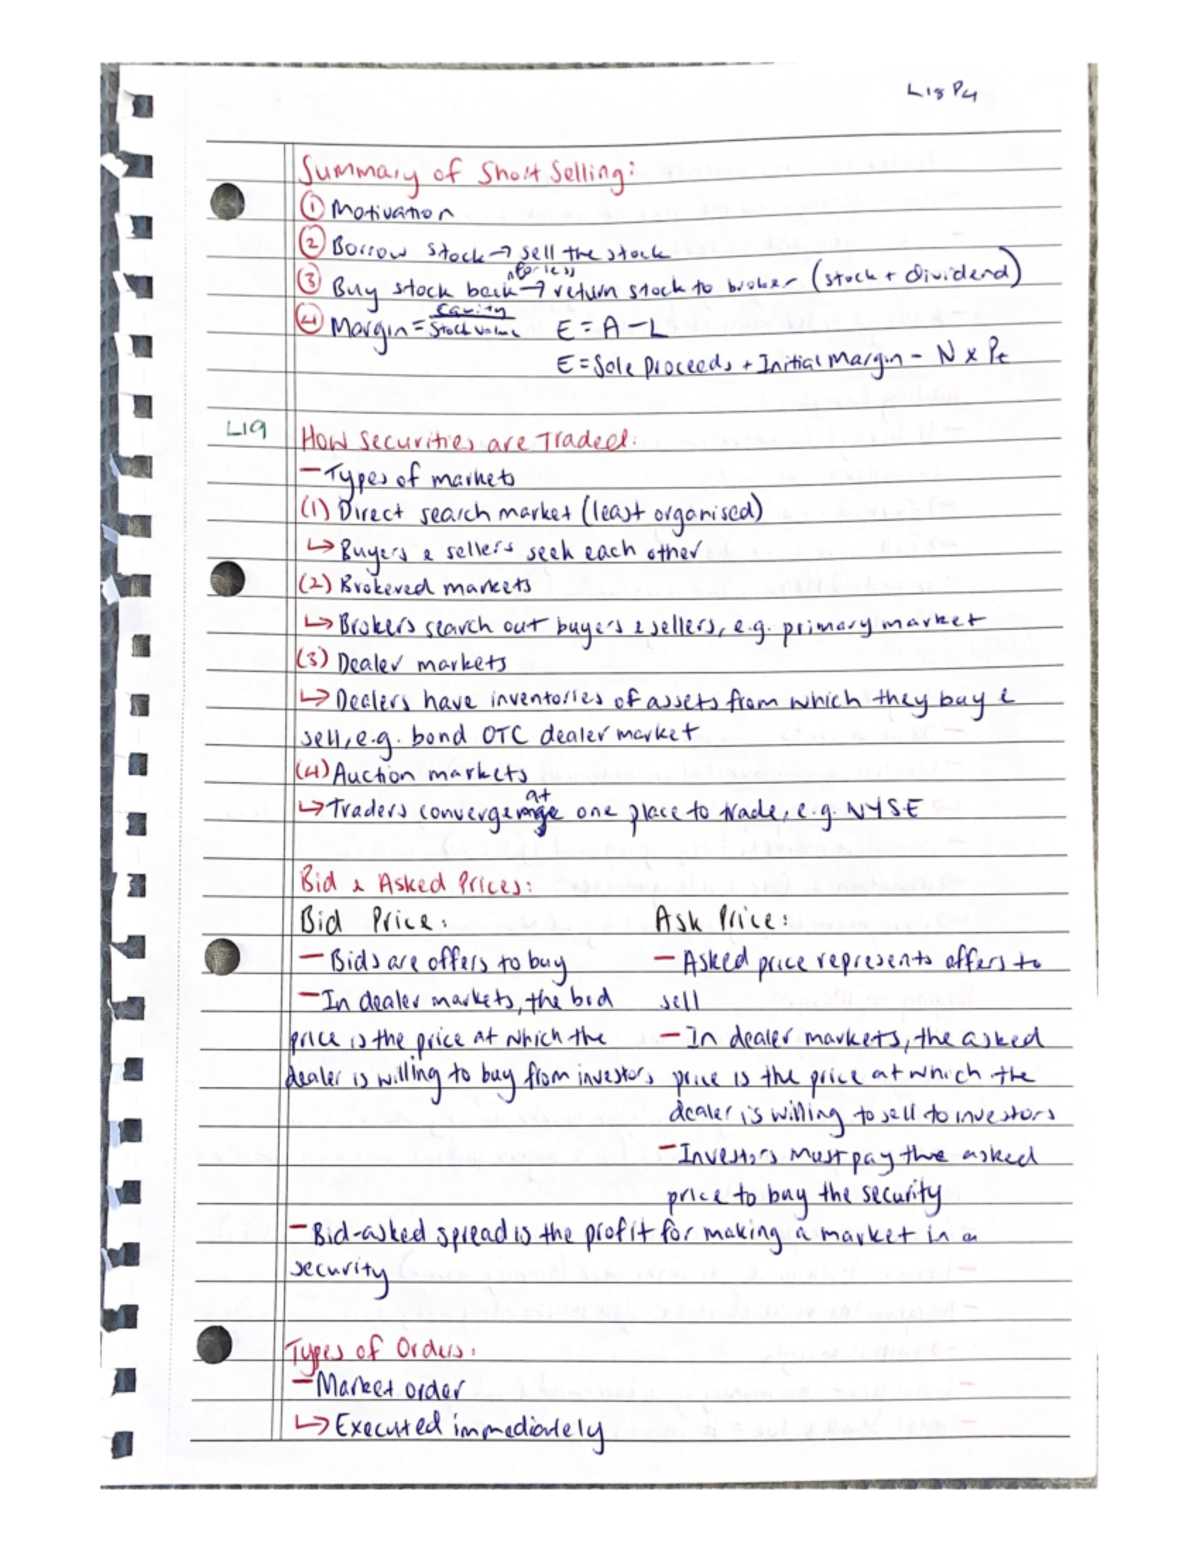 L18 P4
Summary of Short Selling:
① Motivation
② Borrow stock → sell the stock
for less
③ Buy stock back → return stock to broker (stock + dividend)
④ Margin = Equity / Stock value E = A - L
E = Sale Proceeds + Initial Margin - N x Pt
L19
How Securities are Traded:
- Types of markets
(1) Direct search market (least organised)
↳ Buyers & sellers seek each other
(2) Brokered markets
↳ Brokers search out buyers & sellers, e.g. primary market
(3) Dealer markets
↳ Dealers have inventories of assets from which they buy &
sell, e.g. bond OTC dealer market
(4) Auction markets
↳ Traders converge at one place to trade, e.g. NYSE
Bid & Asked Prices:
Bid Price:
- Bids are offers to buy
- In dealer markets, the bid
price is the price at which the
dealer is willing to buy from investors
Ask Price:
- Asked price represents offers to
sell
- In dealer markets, the asked
price is the price at which the
dealer is willing to sell to investors
- Investors must pay the asked
price to buy the security
- Bid-asked spread is the profit for making a market in a
security
Types of Orders:
- Market order
↳ Executed immediately